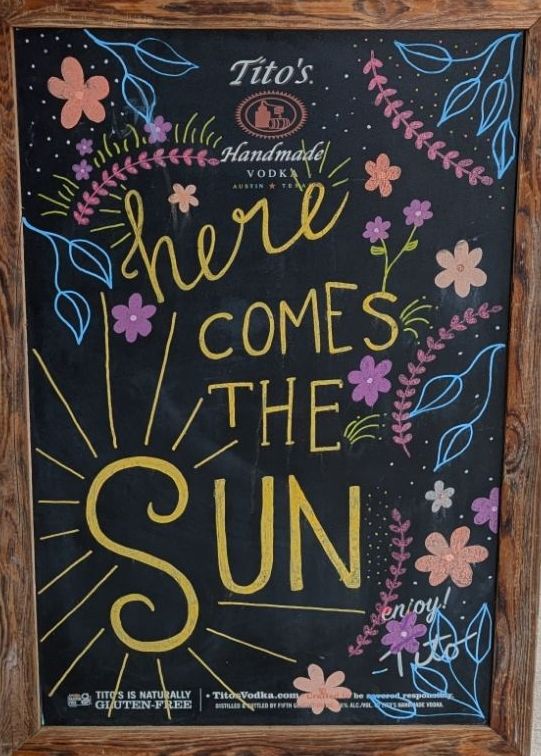 Tito's
Handmade
VODKA
AUSTIN ★ TEXAS
here
COMES
THE
SUN
enjoy!
Tito
TITO'S IS NATURALLY
GLUTEN-FREE
• TitosVodka.com Crafted to be savored responsibly.
DISTILLED & BOTTLED BY FIFTH % ALC./VOL. TITO'S HANDMADE VODKA.